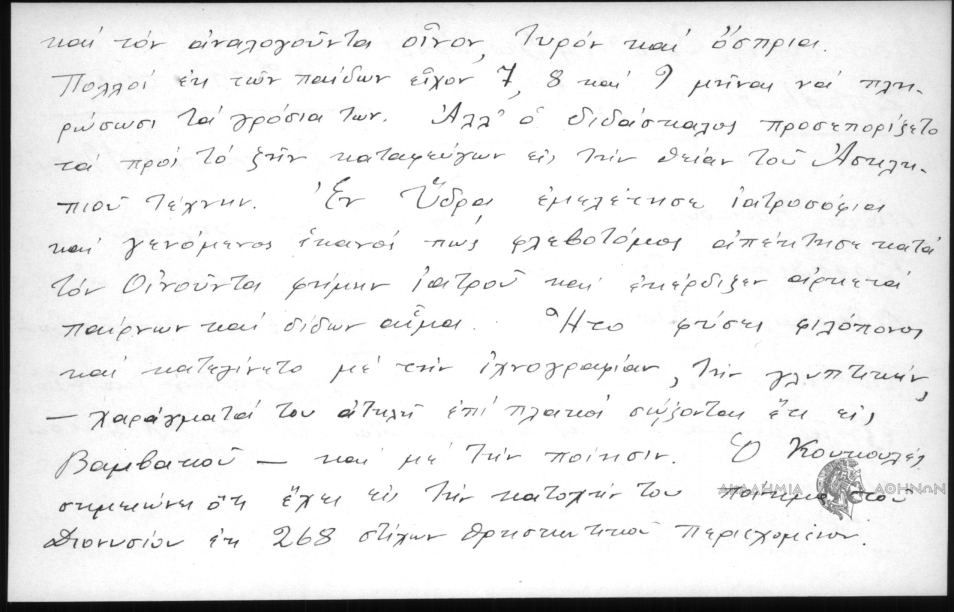 καί τόν ἀναλογοῦντα οἶνον, τυρόν καί ὄσπρια.
Πολλοί ἐκ τῶν παίδων εἶχον 7, 8 καί 9 μῆνας νά πλη-
ρώσωσι τά γρόσια των. Ἀλλ' ὁ διδάσκαλος προσεπορίζετο
τά πρός τό ζῆν καταφεύγων εἰς τήν θείαν τοῦ Ἀσκλη-
πιοῦ τέχνην. Ἐν Ὕδρᾳ ἐμελέτησε ἰατροσόφια
καί γενόμενος ἱκανός πως φλεβοτόμος ἀπέκτησε κατά
τόν Οἰνοῦντα φήμην ἰατροῦ καί ἐκέρδιζεν ἀρκετά
παίρνων καί δίδων αἷμα. Ἦτο φύσει φιλόπονος
καί κατεγίνετο μέ τήν ἰχνογραφίαν, τήν γλυπτικήν,
— χαράγματά του ἀτελῆ ἐπί πλακός σώζονται ἔτι εἰς
Βαμβακοῦ — καί μέ τήν ποίησιν. Ὁ Κουκουλές
σημειώνει ὅτι ἔχει εἰς τήν κατοχήν του ποίημα τοῦ
Διονυσίου ἐκ 268 στίχων θρησκευτικοῦ περιεχομένου.
ΑΚΑΔΗΜΙΑ ΑΘΗΝΩΝ